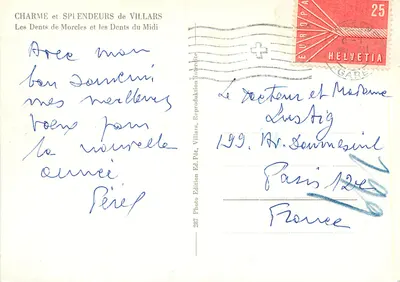 CHARME et SPLENDEURS de VILLARS
Les Dents de Morcles et les Dents du Midi
Avec mon
bon souvenir
mes meilleurs
voeux pour
la nouvelle
année
Pérel
287 Photo Edition Ed. Pdt, Villars, Reproduktion
EUROPA
25
HELVETIA
GARE
Le Docteur et Madame
Lustig
199. Av. Daumesnil
Paris 12e
France